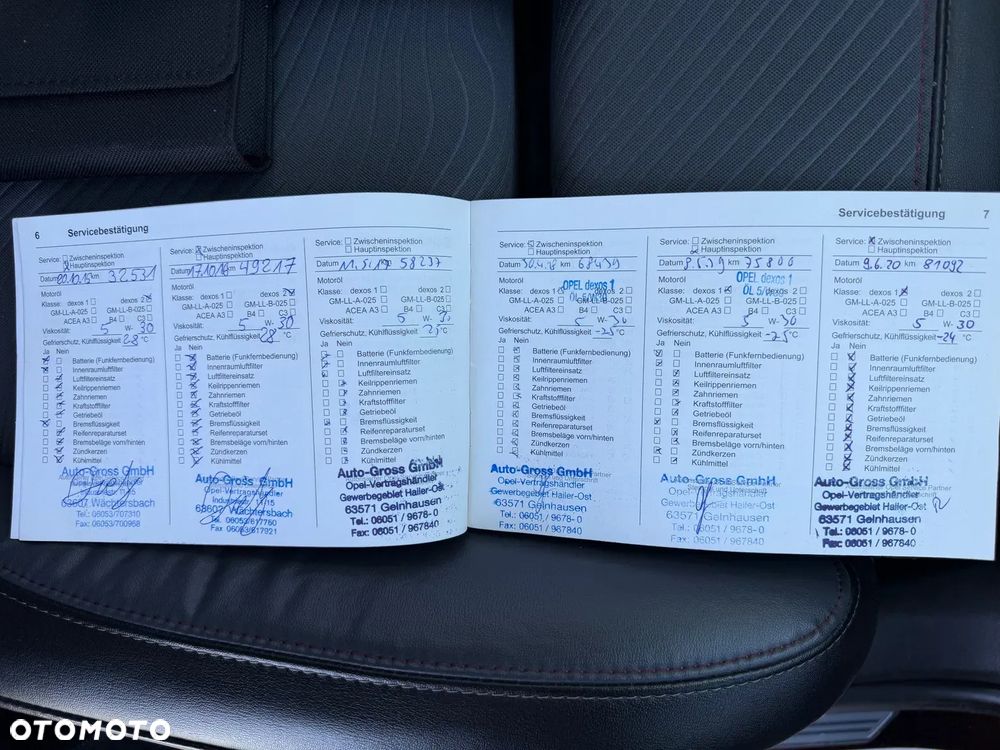 6 Servicebestätigung
Service: Zwischeninspektion
Hauptinspektion
Datum km 32531
Motoröl
Klasse: dexos 1 dexos 2
GM-LL-A-025 GM-LL-B-025
ACEA A3 B4 C3
Viskosität: 5 W- 30
Gefrierschutz, Kühlflüssigkeit 28 °C
Ja Nein
Batterie (Funkfernbedienung)
Innenraumluftfilter
Luftfiltereinsatz
Keilrippenriemen
Zahnriemen
Kraftstofffilter
Getriebeöl
Bremsflüssigkeit
Reifenreparaturset
Bremsbeläge vorn/hinten
Zündkerzen
Kühlmittel
Auto-Gross GmbH
63607 Wächtersbach
Tel.: 06053/707310
Fax: 06053/700968
Service: Zwischeninspektion
Hauptinspektion
Datum 17.10.16 km 49217
Motoröl
Klasse: dexos 1 dexos 2
GM-LL-A-025 GM-LL-B-025
ACEA A3 B4 C3
Viskosität: 5 W- 30
Gefrierschutz, Kühlflüssigkeit 28 °C
Ja Nein
Batterie (Funkfernbedienung)
Innenraumluftfilter
Luftfiltereinsatz
Keilrippenriemen
Zahnriemen
Kraftstofffilter
Getriebeöl
Bremsflüssigkeit
Reifenreparaturset
Bremsbeläge vorn/hinten
Zündkerzen
Kühlmittel
Auto-Gross GmbH
Opel-Vertragshändler
63607 Wächtersbach
Tel. 06053/617760
Fax 06053/617921
Service: Zwischeninspektion
Hauptinspektion
Datum km 58237
Motoröl
Klasse: dexos 1 dexos 2
GM-LL-A-025 GM-LL-B-025
ACEA A3 B4 C3
Viskosität: 5 W-
Gefrierschutz, Kühlflüssigkeit 25 °C
Ja Nein
Batterie (Funkfernbedienung)
Innenraumluftfilter
Luftfiltereinsatz
Keilrippenriemen
Zahnriemen
Kraftstofffilter
Getriebeöl
Bremsflüssigkeit
Reifenreparaturset
Bremsbeläge vorn/hinten
Zündkerzen
Kühlmittel
Auto-Gross GmbH
Opel-Vertragshändler
Gewerbegebiet Hailer-Ost
63571 Gelnhausen
Tel.: 06051 / 9678- 0
Fax: 06051 / 967840
Servicebestätigung 7
Service: Zwischeninspektion
Hauptinspektion
Datum 30.4.18 km 68439
Motoröl OPEL dexos 1
Klasse: dexos 1 dexos 2
GM-LL-A-025 GM-LL-B-025
ACEA A3 B4 C3
Viskosität: 5 W- 30
Gefrierschutz, Kühlflüssigkeit -25 °C
Ja Nein
Batterie (Funkfernbedienung)
Innenraumluftfilter
Luftfiltereinsatz
Keilrippenriemen
Zahnriemen
Kraftstofffilter
Getriebeöl
Bremsflüssigkeit
Reifenreparaturset
Bremsbeläge vorn/hinten
Zündkerzen
Kühlmittel
Auto-Gross GmbH
Opel-Vertragshändler
Gewerbegebiet Hailer-Ost
63571 Gelnhausen
Tel.: 06051 / 9678- 0
Fax: 06051 / 967840
Service: Zwischeninspektion
Hauptinspektion
Datum 8.5.19 km 75800
Motoröl OPEL dexos 1
Klasse: dexos 1 dexos 2
GM-LL-A-025 GM-LL-B-025
ACEA A3 B4 C3
Viskosität: 5 W- 30
Gefrierschutz, Kühlflüssigkeit -25 °C
Ja Nein
Batterie (Funkfernbedienung)
Innenraumluftfilter
Luftfiltereinsatz
Keilrippenriemen
Zahnriemen
Kraftstofffilter
Getriebeöl
Bremsflüssigkeit
Reifenreparaturset
Bremsbeläge vorn/hinten
Zündkerzen
Kühlmittel
Auto-Gross GmbH
Opel-Vertragshändler
Gewerbegebiet Hailer-Ost
63571 Gelnhausen
Tel.: 06051 / 9678- 0
Fax: 06051 / 967840
Service: Zwischeninspektion
Hauptinspektion
Datum 9.6.20 km 81092
Motoröl
Klasse: dexos 1 dexos 2
GM-LL-A-025 GM-LL-B-025
ACEA A3 B4 C3
Viskosität: 5 W- 30
Gefrierschutz, Kühlflüssigkeit -24 °C
Ja Nein
Batterie (Funkfernbedienung)
Innenraumluftfilter
Luftfiltereinsatz
Keilrippenriemen
Zahnriemen
Kraftstofffilter
Getriebeöl
Bremsflüssigkeit
Reifenreparaturset
Bremsbeläge vorn/hinten
Zündkerzen
Kühlmittel
Auto-Gross GmbH
Opel-Vertragshändler
Gewerbegebiet Hailer-Ost
63571 Gelnhausen
Tel.: 06051 / 9678- 0
Fax: 06051 / 967840
OTOMOTO